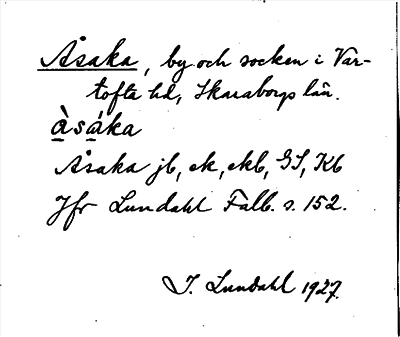 Åsaka, by och socken i Var-
tofta hd, Skaraborgs län.
à̱sǻ̱ka
Åsaka jb, ek, ekb, GS, Kb
Jfr Lundahl Falb. s. 152.
I. Lundahl 1927.